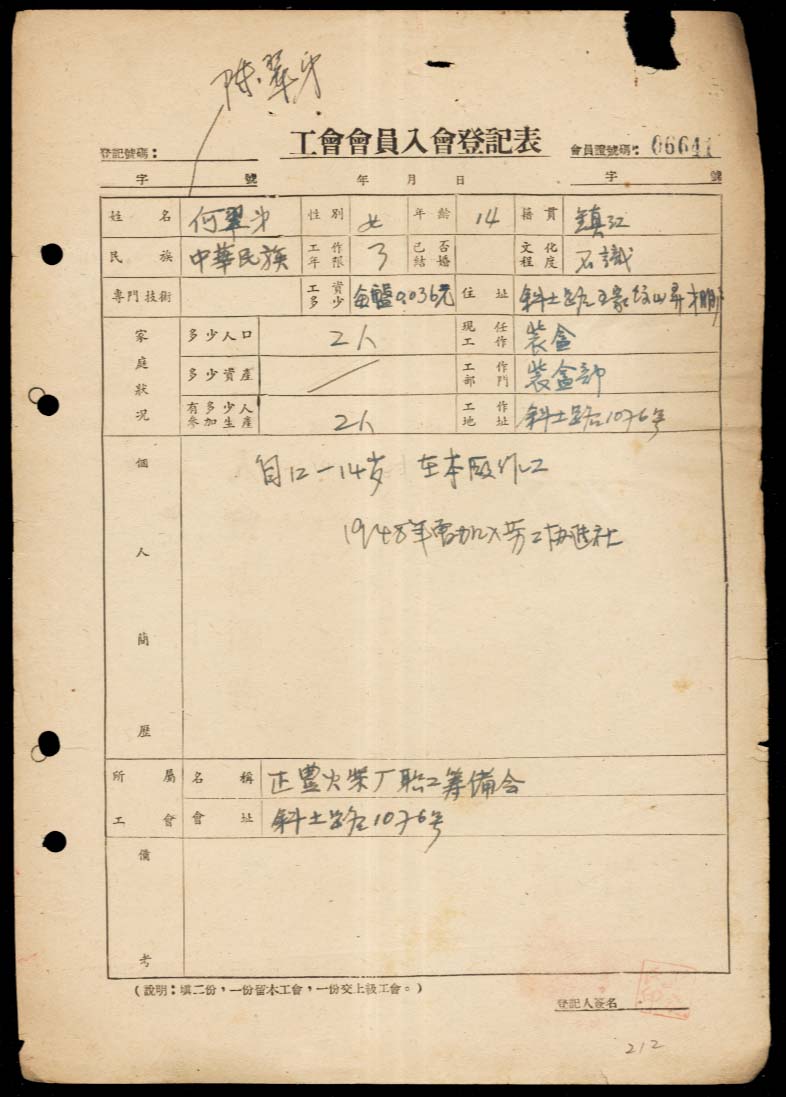 陈翠弟
工會會員入會登記表
登記號碼：
會員證號碼：06641
字 號 年 月 日 字 號
姓名 何翠弟 性別 女 年齡 14 籍貫 鎮江
民族 中華民族 工作年限 3 已否結婚 文化程度 不識
專門技術 工資多少 每 0.036元 住址 斜土路
家庭狀況 多少人口 2人 現任工作 裝盒
多少資產 工作部門 裝盒部
有多少人參加生產 2人 工作地址 斜土路1076号
個人簡歷
自12—14岁 在本厰作工
1948年曾加入劳工协進社
所屬工會 名稱 正豐火柴厂职工筹備会
會址 斜土路1076号
備考
(說明：填二份，一份留本工會，一份交上級工會。)
登記人簽名
212